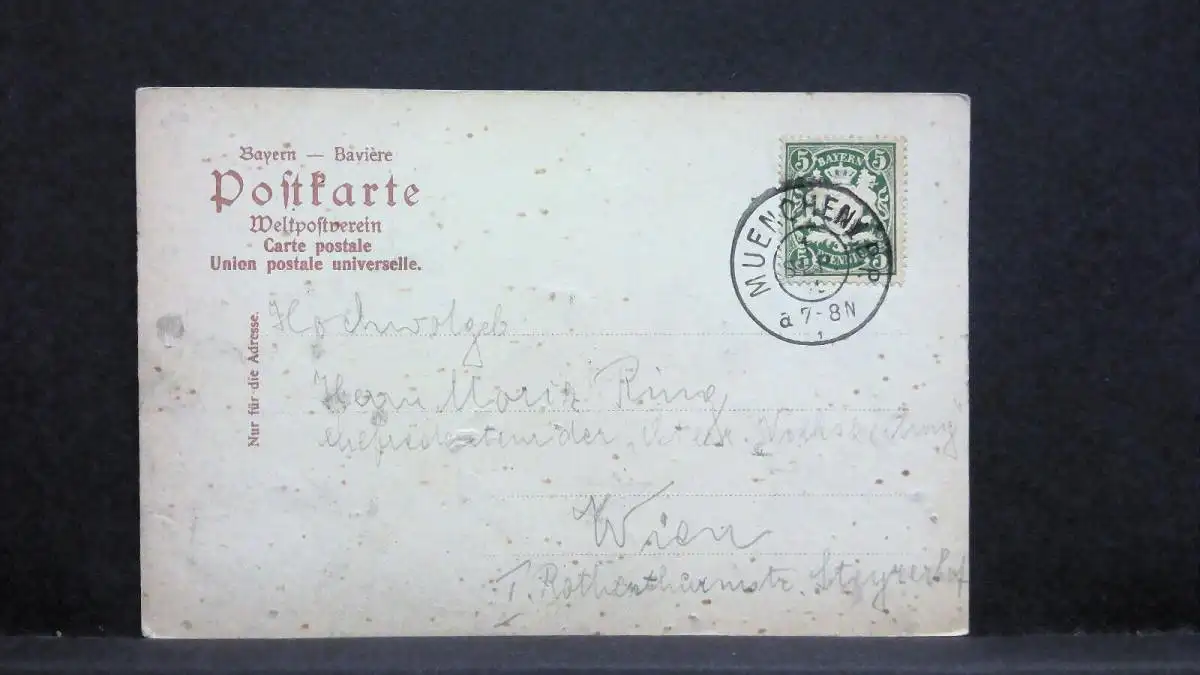 Bayern — Bavière
Postkarte
Weltpostverein
Carte postale
Union postale universelle.
Nur für die Adresse.
5 BAYERN 5
5 PFENNIG 5
MUENCHEN
a 7-8 N
Hochwolgeb
Herrn Moriz Ring
Chefredacteur der
Wien
I. Rothenthurmstr. Steyrerhof